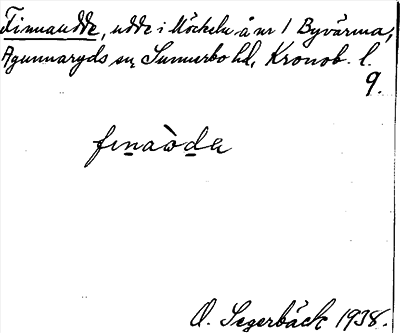 Finnaudde, udde i Möckeln å nr 1 Byvärma,
Agunnaryds sn, Sunnerbo hd, Kronob. l.
9.
fınaòdə
O. Segerbäck 1938.